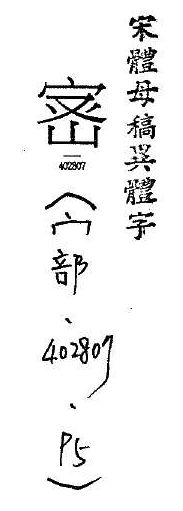 宋體母稿異體字
402807
(宀部、402807、P5)